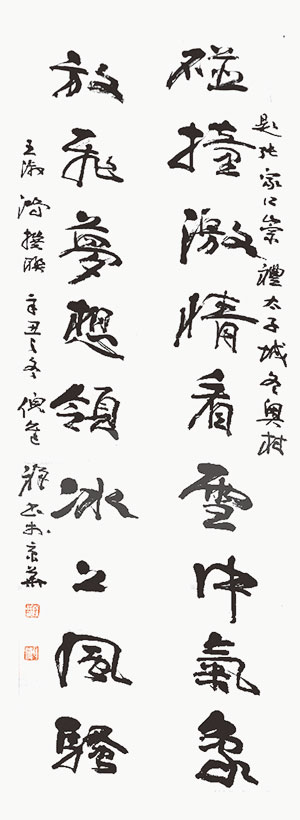 題张家口崇禮太子城冬奥村
碰撞激情看雪中氣象
放飛夢想領冰上風騷
王淑 撰聯 辛丑之冬 倪 書於京華